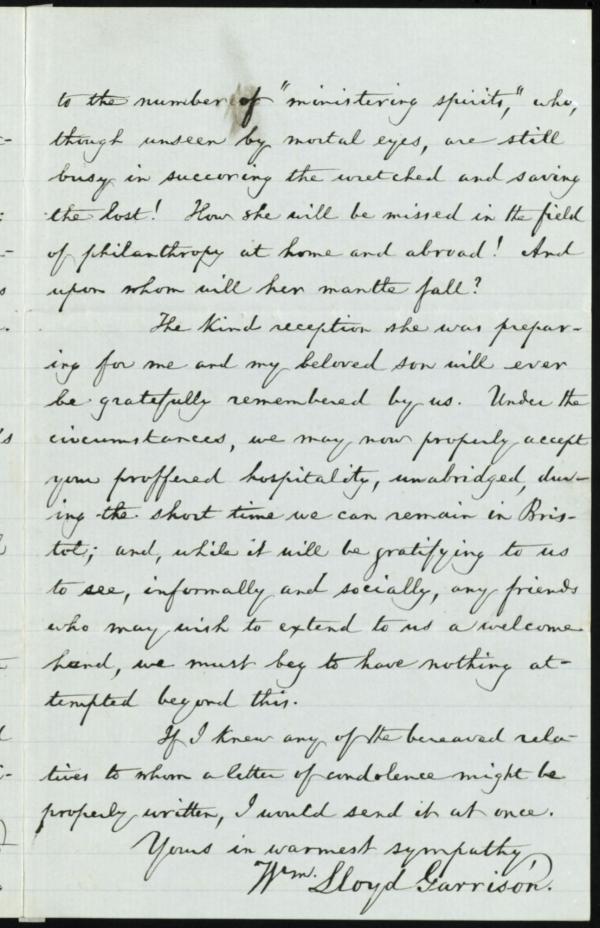 to the number of "ministering spirits," who,
though unseen by mortal eyes, are still
busy in succoring the wretched and saving
the lost! How she will be missed in the field
of philanthropy at home and abroad! And
upon whom will her mantle fall?
The kind reception she was prepar-
ing for me and my beloved son will ever
be gratefully remembered by us. Under the
circumstances, we may now properly accept
your proffered hospitality, unabridged, dur-
ing the short time we can remain in Bris-
tol; and, while it will be gratifying to us
to see, informally and socially, any friends
who may wish to extend to us a welcome
hand, we must beg to have nothing at-
tempted beyond this.
If I knew any of the bereaved rela-
tives to whom a letter of condolence might be
properly written, I would send it at once.
Yours in warmest sympathy,
Wm. Lloyd Garrison.